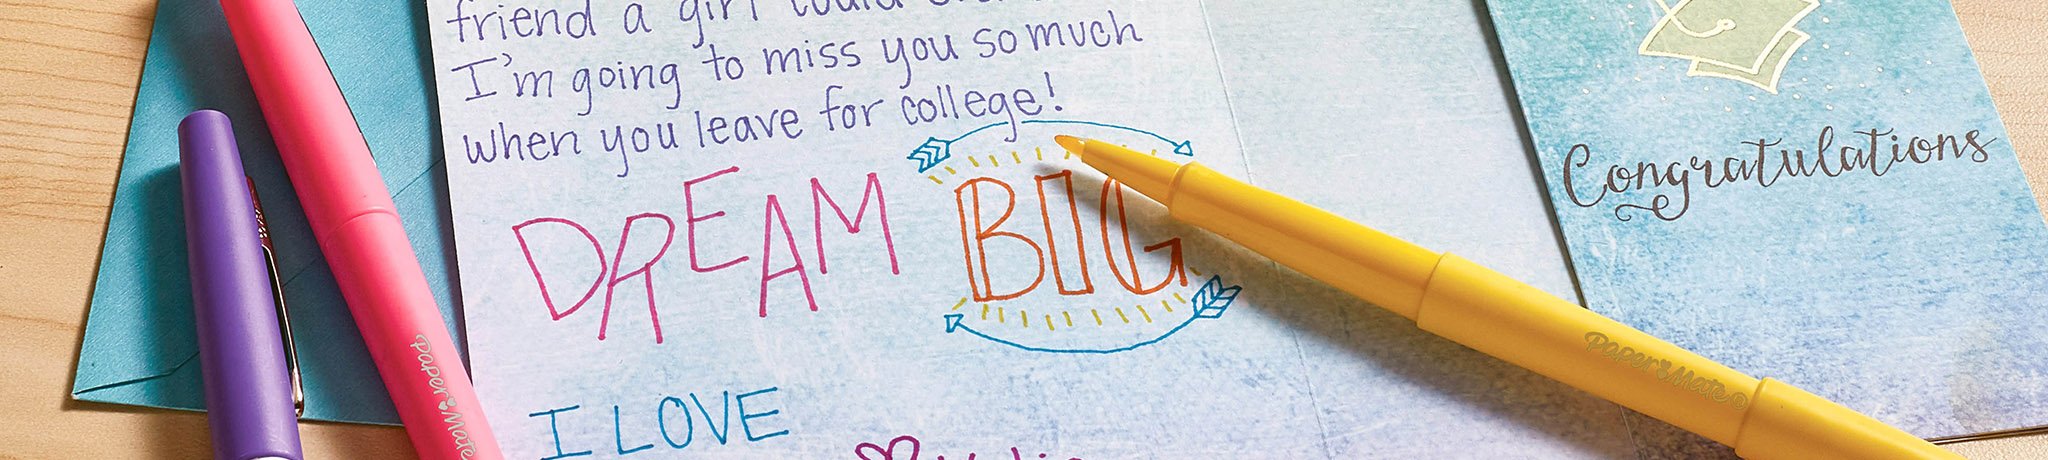 friend a girl could
I'm going to miss you so much
when you leave for college!
DREAM BIG
I LOVE
Congratulations
Paper Mate
Paper Mate